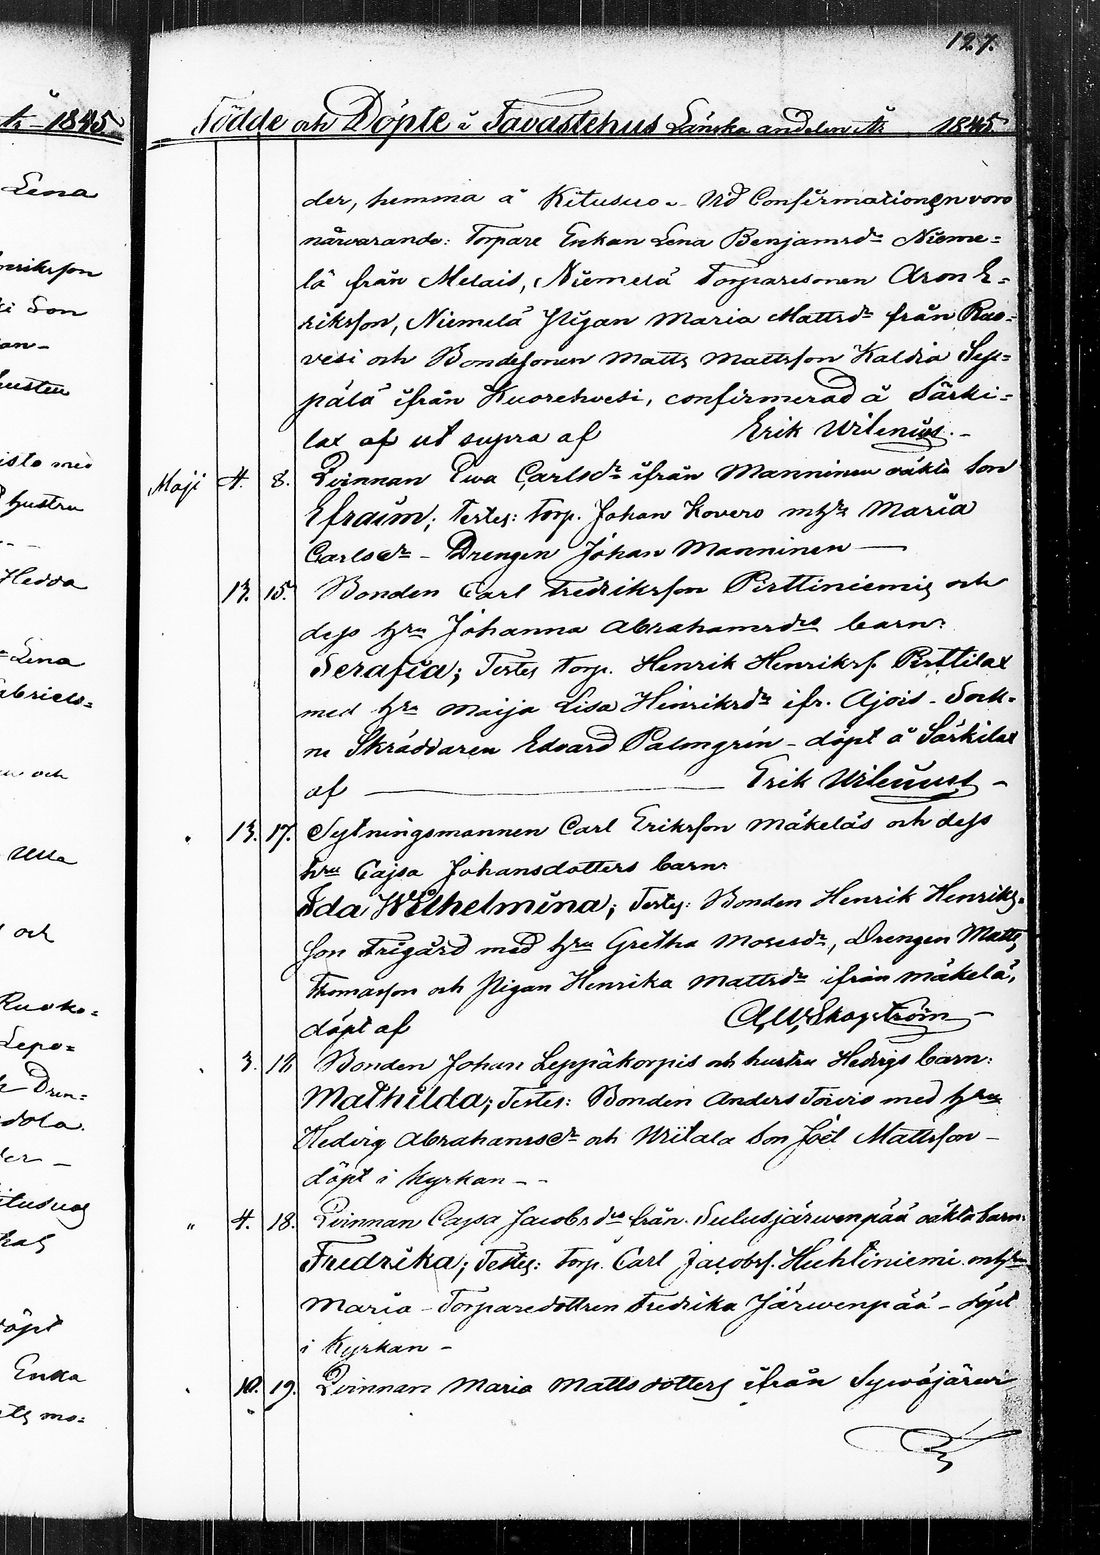 127.
å 1845
Födde och Döpte i Tavastehus Länska andelen År 1845
Lena
Son
hustru
Hedda
Lena
Ulla
och
Enka
der, hemma å Kitusuo. Vid Confirmationen voro
närvarande: Torpare Enkan Lena Benjamsdr Nieme=
lä från Melais, Niemelä Torparesonen Aron E=
riksson, Niemelä Pigan Maria Mattsdr från Ruo=
vesi och Bondesonen Matts Mattsson Kaldia Sep=
pälä ifrån Kuorehvesi, confirmerad å Särki=
lax af ut supra af Erik Wilenius. -
Maji 4. 8. Qvinnan Ewa Carlsdr ifrån Manninen oäkta Son
Efraim; Testes: Torp. Johan Kovero m hr Maria
Carlsdr - Drengen Johan Manninen —
13. 15. Bonden Carl Fredriksson Pirttiniemis och
dess hru Johanna Abrahamsdrs barn:
Serafia; Testes Torp. Henrik Henrikss. Pirttilax
med hru Maija Lisa Henriksdr ifr. Ajois - Sock-
ne Skräddaren Edvard Palmgrén - döpt å Särkilax
af — Erik Wilenius -
13. 17. Sytningsmannen Carl Eriksson Mäkeläs och dess
hru Cajsa Johansdotters barn:
Ida Wilhelmina; Testes: Bonden Henrik Henriks=
son Frigård med hru Gretha Mosesdr, Drengen Matts
Thomasson och Pigan Henrika Mattsdr ifrån Mäkelä,
döpt af A. W. Skogström -
3. 18 Bonden Johan Leppäkorpis och hustru Hedvigs barn:
Mathilda; Testes: Bonden Anders Toivio med hru
Hedvig Abrahamsdr och Uitala Son Joël Mattsson -
döpt i Kyrkan - -
" 4. 18. Qvinnan Cajsa Jacobsdrs från Sulusjärwenpää oäkta barn:
Fredrika; Testes: Torp. Carl Jacobss. Huhtiniemi m hru
Maria - Torparedottren Fredrika Järwenpää - döpt
i Kyrkan -
10. 19. Qvinnan Maria Mattsdotters ifrån Sywäjärwi